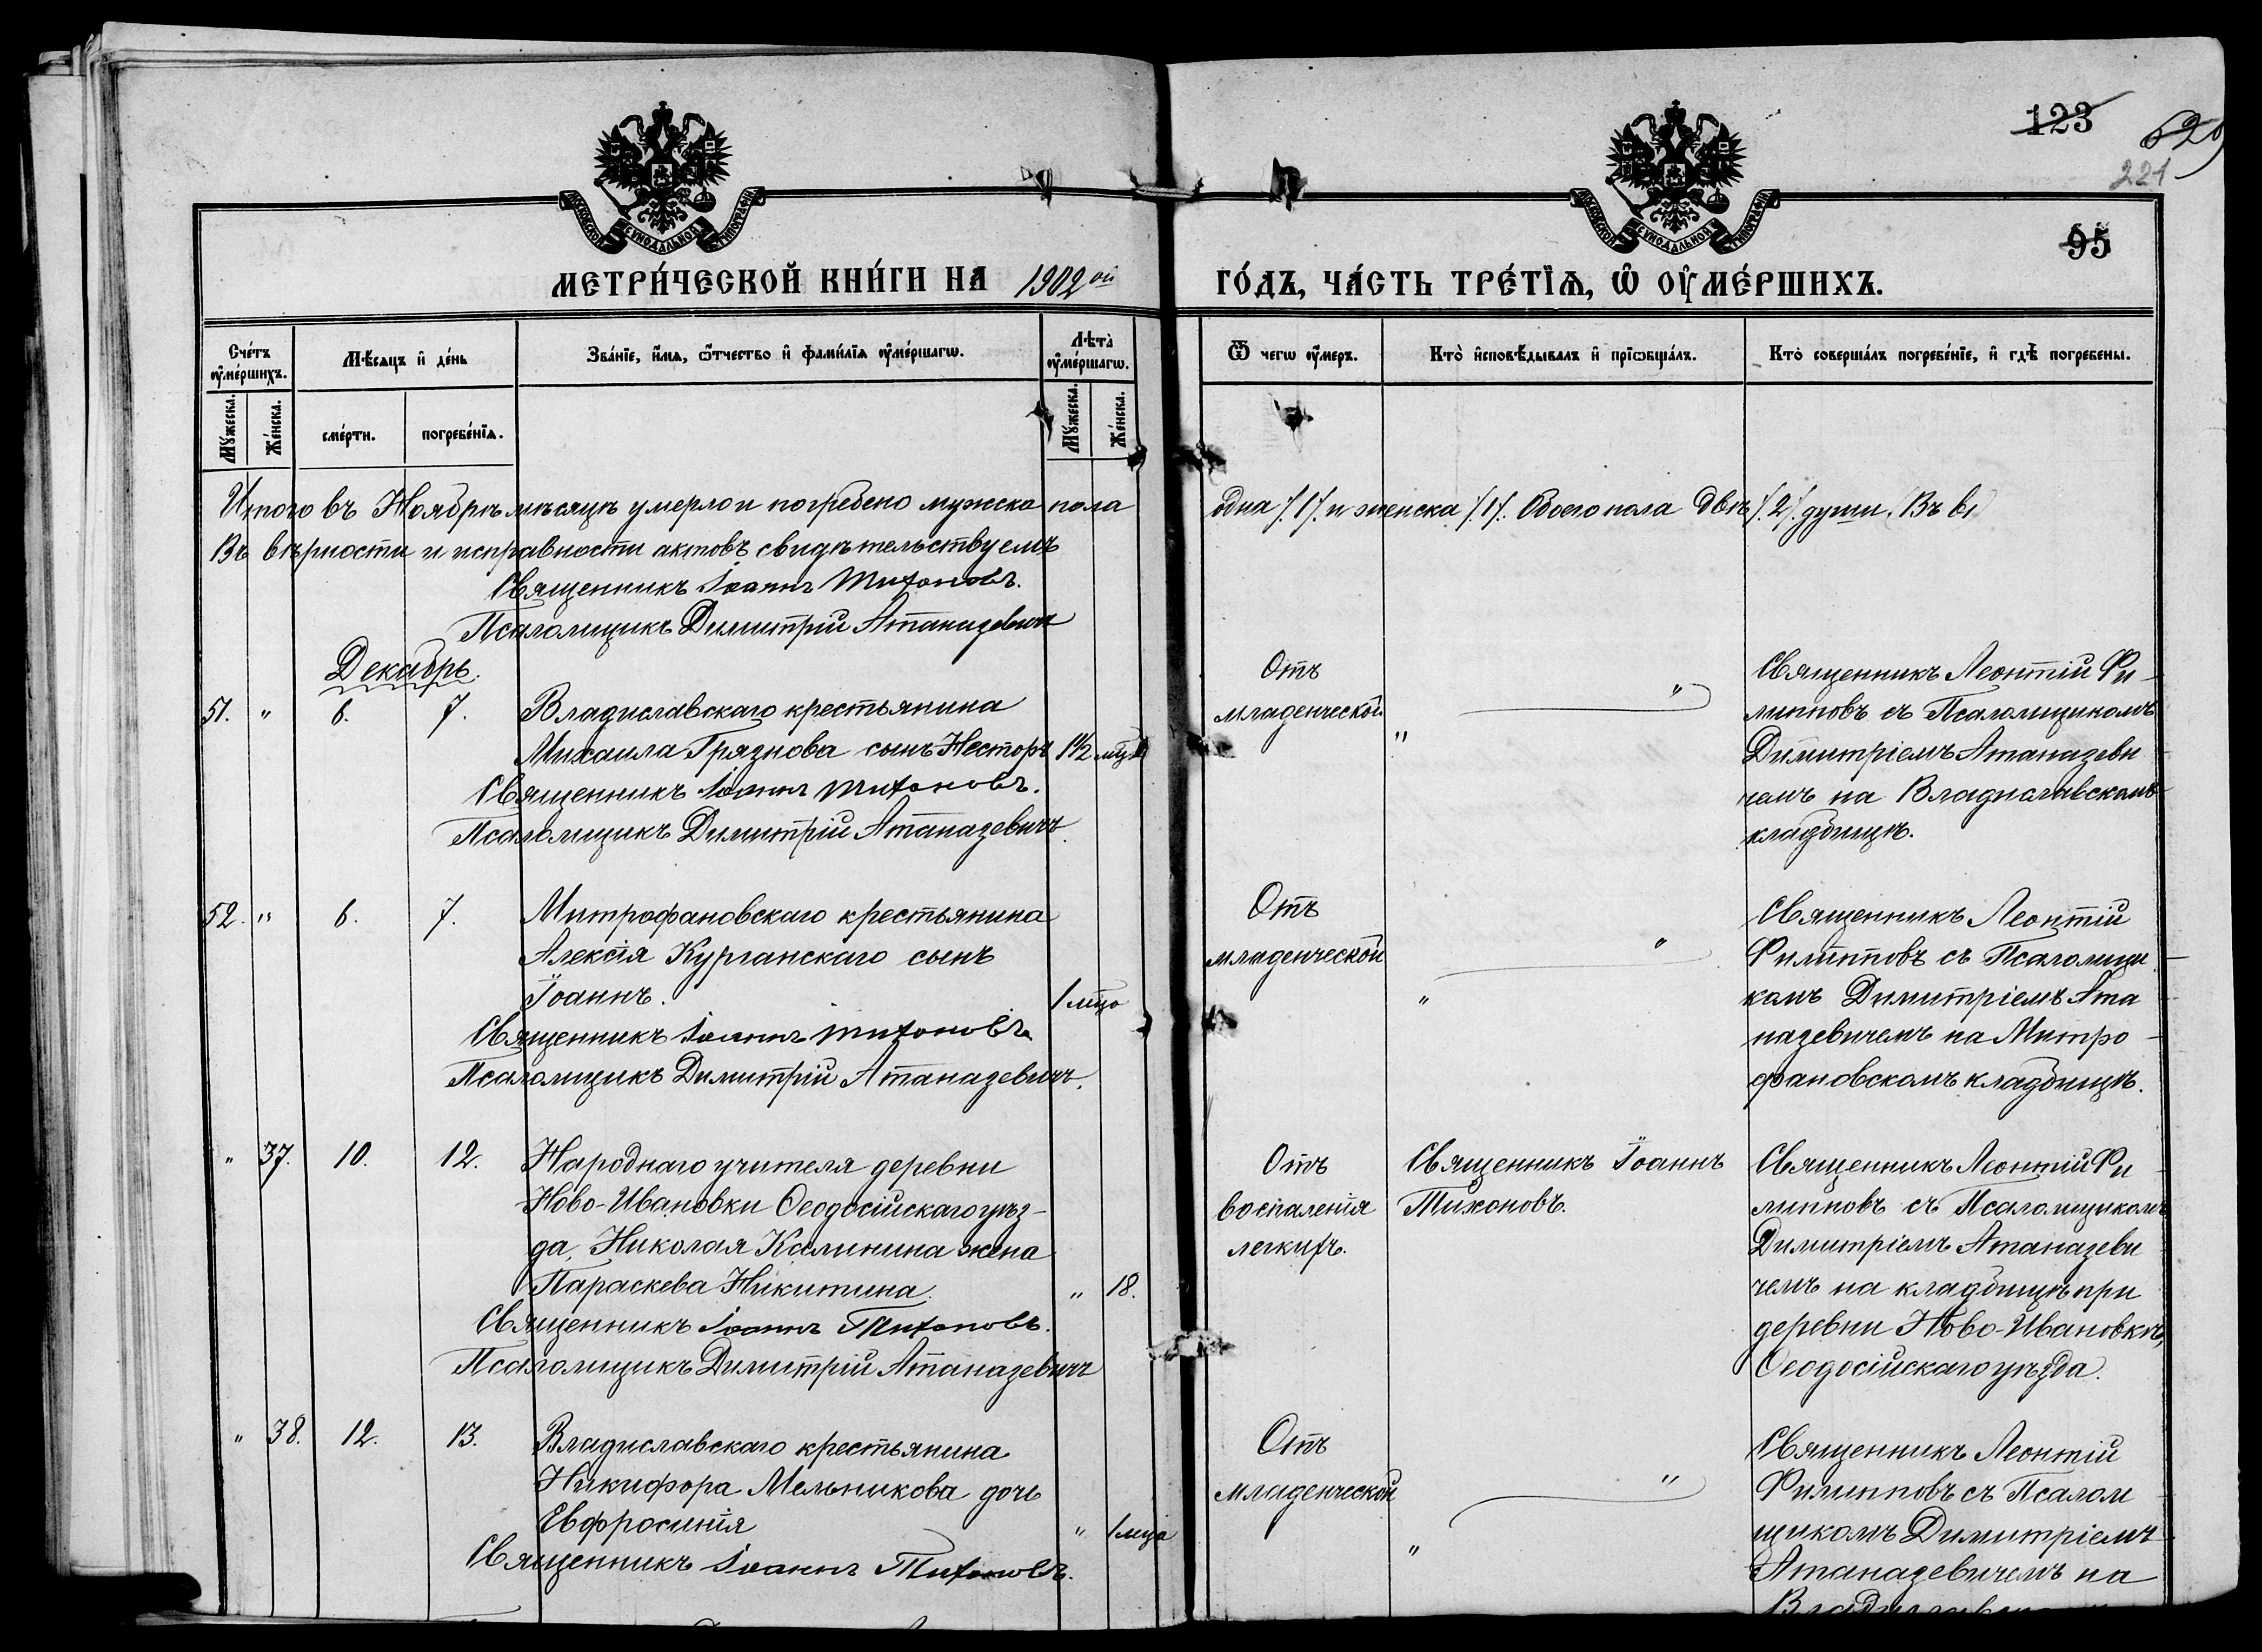 123
629
221
95
МОСКОВСКОЙ СѴНОДАЛЬНОЙ ТИПОГРАФІИ
МОСКОВСКОЙ СѴНОДАЛЬНОЙ ТИПОГРАФІИ
МЕТРИ́ЧЕСКОЙ КНИ́ГИ НА 1902 ой ГО́ДЪ, ЧА́СТЬ ТРЕ́ТЇѦ, Ѡ҆ ОУ҆МЕ́РШИХЪ.
Сче́тъ оу҆ме́ршихъ.
Мѣ́сяцъ и҆ де́нь
Зва́нїе, и҆́мѧ, ѻ҆́тчество и҆ фами́лїѧ оу҆ме́ршагѡ.
Лѣта̀ оу҆ме́ршагѡ.
Ѿ чегѡ̀ оу҆́меръ.
Кто̀ и҆сповѣ́дывалъ и҆ прїѡбща́лъ.
Кто̀ соверша́лъ погребе́нїе, и҆ гдѣ̀ погребены.
Му́жеска.
Же́нска.
сме́рти.
погребе́нїѧ.
Му́жеска.
Же́нска.
Итого въ Ноябрѣ мѣсяцѣ умерло и погребено мужска пола одна /.1/. и женска /.1/. Обоего пола двѣ /.2/. души. Въ вѣ
Въ вѣрности и исправности актовъ свидѣтельствуемъ
Священникъ Іоаннъ Тихоновъ.
Псаломщикъ Димитрій Атаназевичъ
Декабрь.
51. " 6. 7.
Владиславскаго крестьянина
Михаила Грязнова сынъ Несторъ 1½ мца
Священникъ Іоаннъ Тихоновъ.
Псаломщикъ Димитрій Атаназевичъ.
Отъ
младенческой
" "
Священникъ Леонтій Фи-
липповъ съ Псаломщикомъ
Димитріемъ Атаназеви-
чемъ на Владиславскомъ
кладбищѣ.
52. " 6. 7.
Митрофановскаго крестьянина
Алексія Курганскаго сынъ
Іоаннъ. 1 мца
Священникъ Іоаннъ Тихоновъ.
Псаломщикъ Димитрій Атаназевичъ.
Отъ
младенческой
" "
Священникъ Леонтій
Филипповъ съ Псаломщи-
комъ Димитріемъ Ата-
назевичемъ на Митро-
фановскомъ кладбищѣ.
" 37. 10. 12.
Народнаго учителя деревни
Ново-Ивановки Ѳеодосійскаго уѣз-
да, Николая Калинина жена
Параскева Никитина. " 18.
Священникъ Іоаннъ Тихоновъ.
Псаломщикъ Димитрій Атаназевичъ
Отъ
воспаленія
легкихъ.
Священникъ Іоаннъ
Тихоновъ.
Священникъ Леонтій Фи-
липповъ съ Псаломщикомъ
Димитріемъ Атаназеви-
чемъ на кладбищѣ при
деревни Ново-Ивановкѣ,
Ѳеодосійскаго уѣзда.
" 38. 12. 13.
Владиславскаго крестьянина
Никифора Мельникова дочь
Евфросинія " 1 мца
Священникъ Іоаннъ Тихоновъ.
Отъ
младенческой
" "
Священникъ Леонтій
Филипповъ съ Псалом
щикомъ Димитріемъ
Атаназевичемъ на